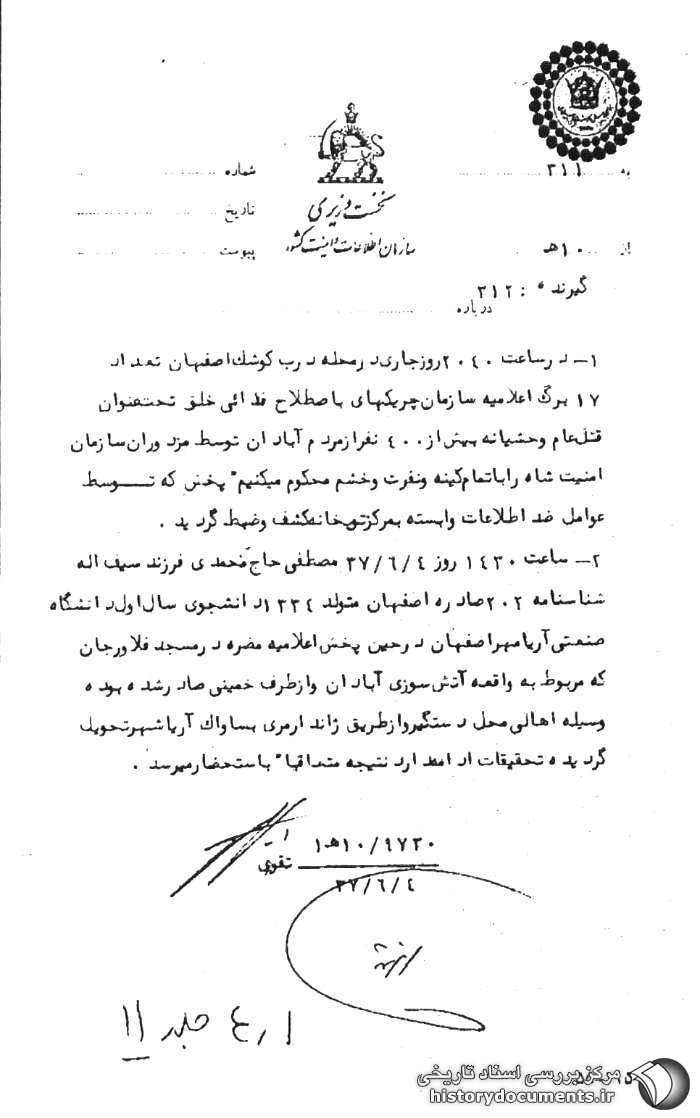 شماره
به ۳۱۱
نخست وزیری
تاریخ
سازمان اطلاعات و امنیت کشور
از ۱۰ هـ
پیوست
گیرنده : ۳۱۲
درباره
۱- در ساعت ۲۰۴۰ روز جاری در محله درب کوشک اصفهان تعداد
۱۷ برگ اعلامیه سازمان چریکهای باصطلاح فدائی خلق تحت عنوان
قتل عام وحشیانه بیش از ۴۰۰ نفر از مردم آبادان توسط مزدوران سازمان
امنیت شاه را با تمام کینه و نفرت و خشم محکوم میکنیم" پخش که توسط
عوامل ضد اطلاعات وابسته بمرکز توپخانه کشف و ضبط گردید .
۲- ساعت ۱۴۳۰ روز ۳۷/۶/۴ مصطفی حاج محمدی فرزند سیف اله
شناسنامه ۲۰۲ صادره اصفهان متولد ۱۳۳۴ دانشجوی سال اول دانشگاه
صنعتی آریامهر اصفهان در حین پخش اعلامیه مضره در مسجد فلاورجان
که مربوط به واقعه آتش سوزی آبادان و از طرف خمینی صادر شده بوده
وسیله اهالی محل دستگیر و از طریق ژاندارمری بساواک آریاشهر تحویل
گردیده تحقیقات ادامه دارد نتیجه متعاقبا" باستحضار میرسد .
۱۰/۹۷۳۰هـ۱
تقوی
۳۷/۶/۴
ا ر ع جلد ۱۱
مرکز بررسی اسناد تاریخی
historydocuments.ir